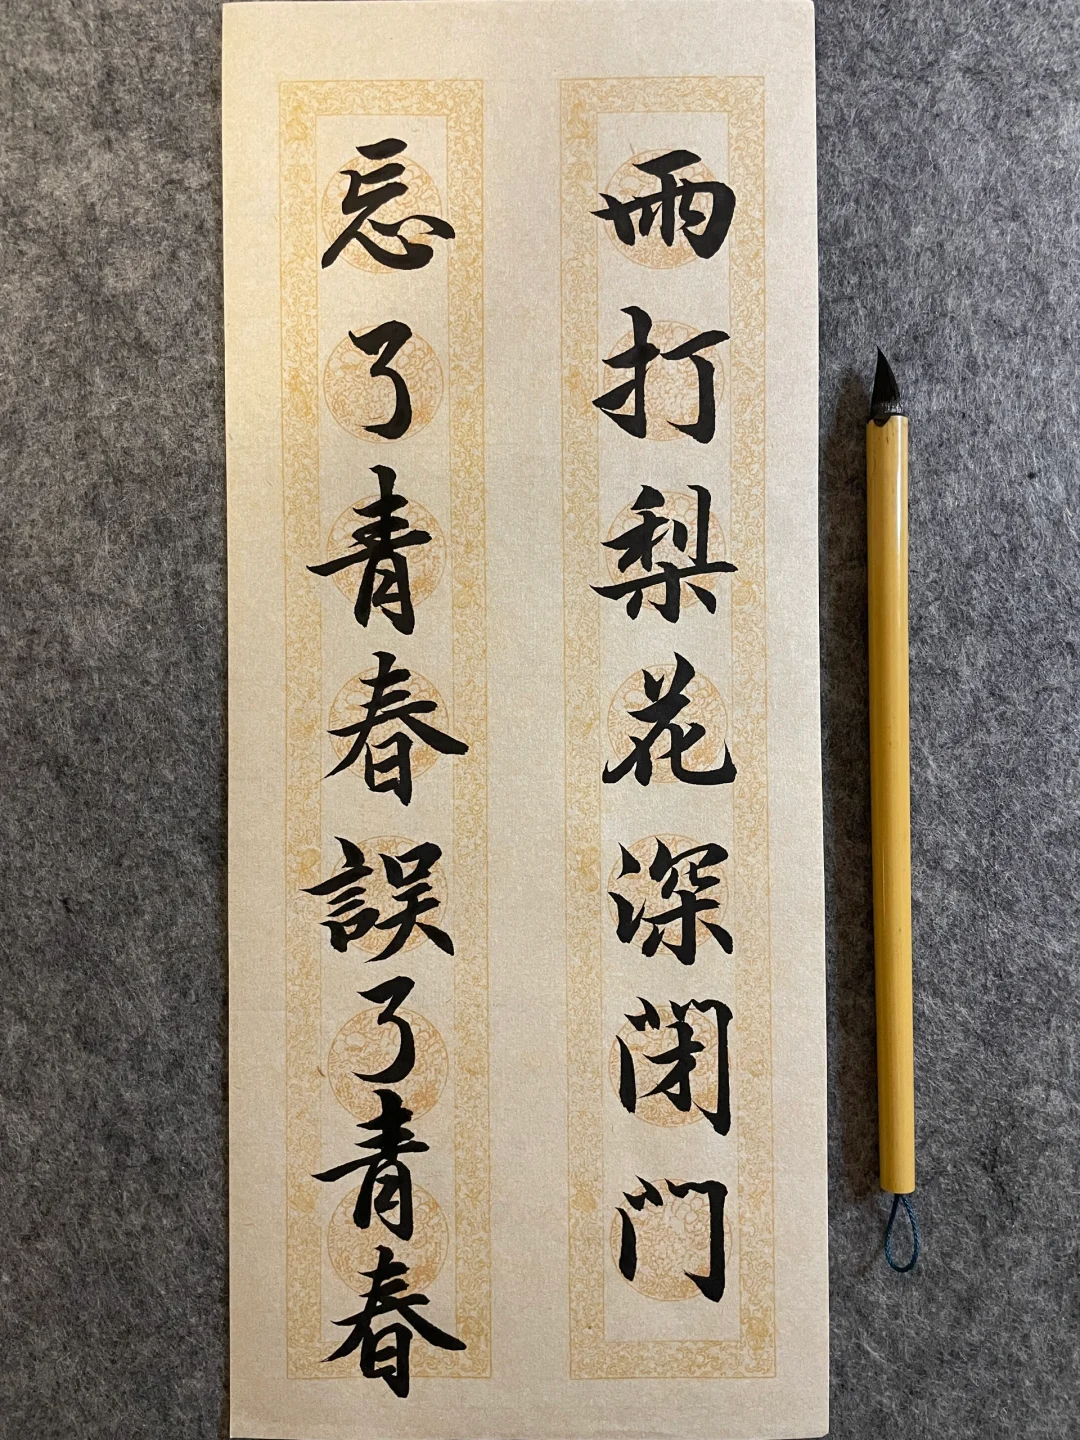 雨打梨花深闭门
忘了青春誤了青春